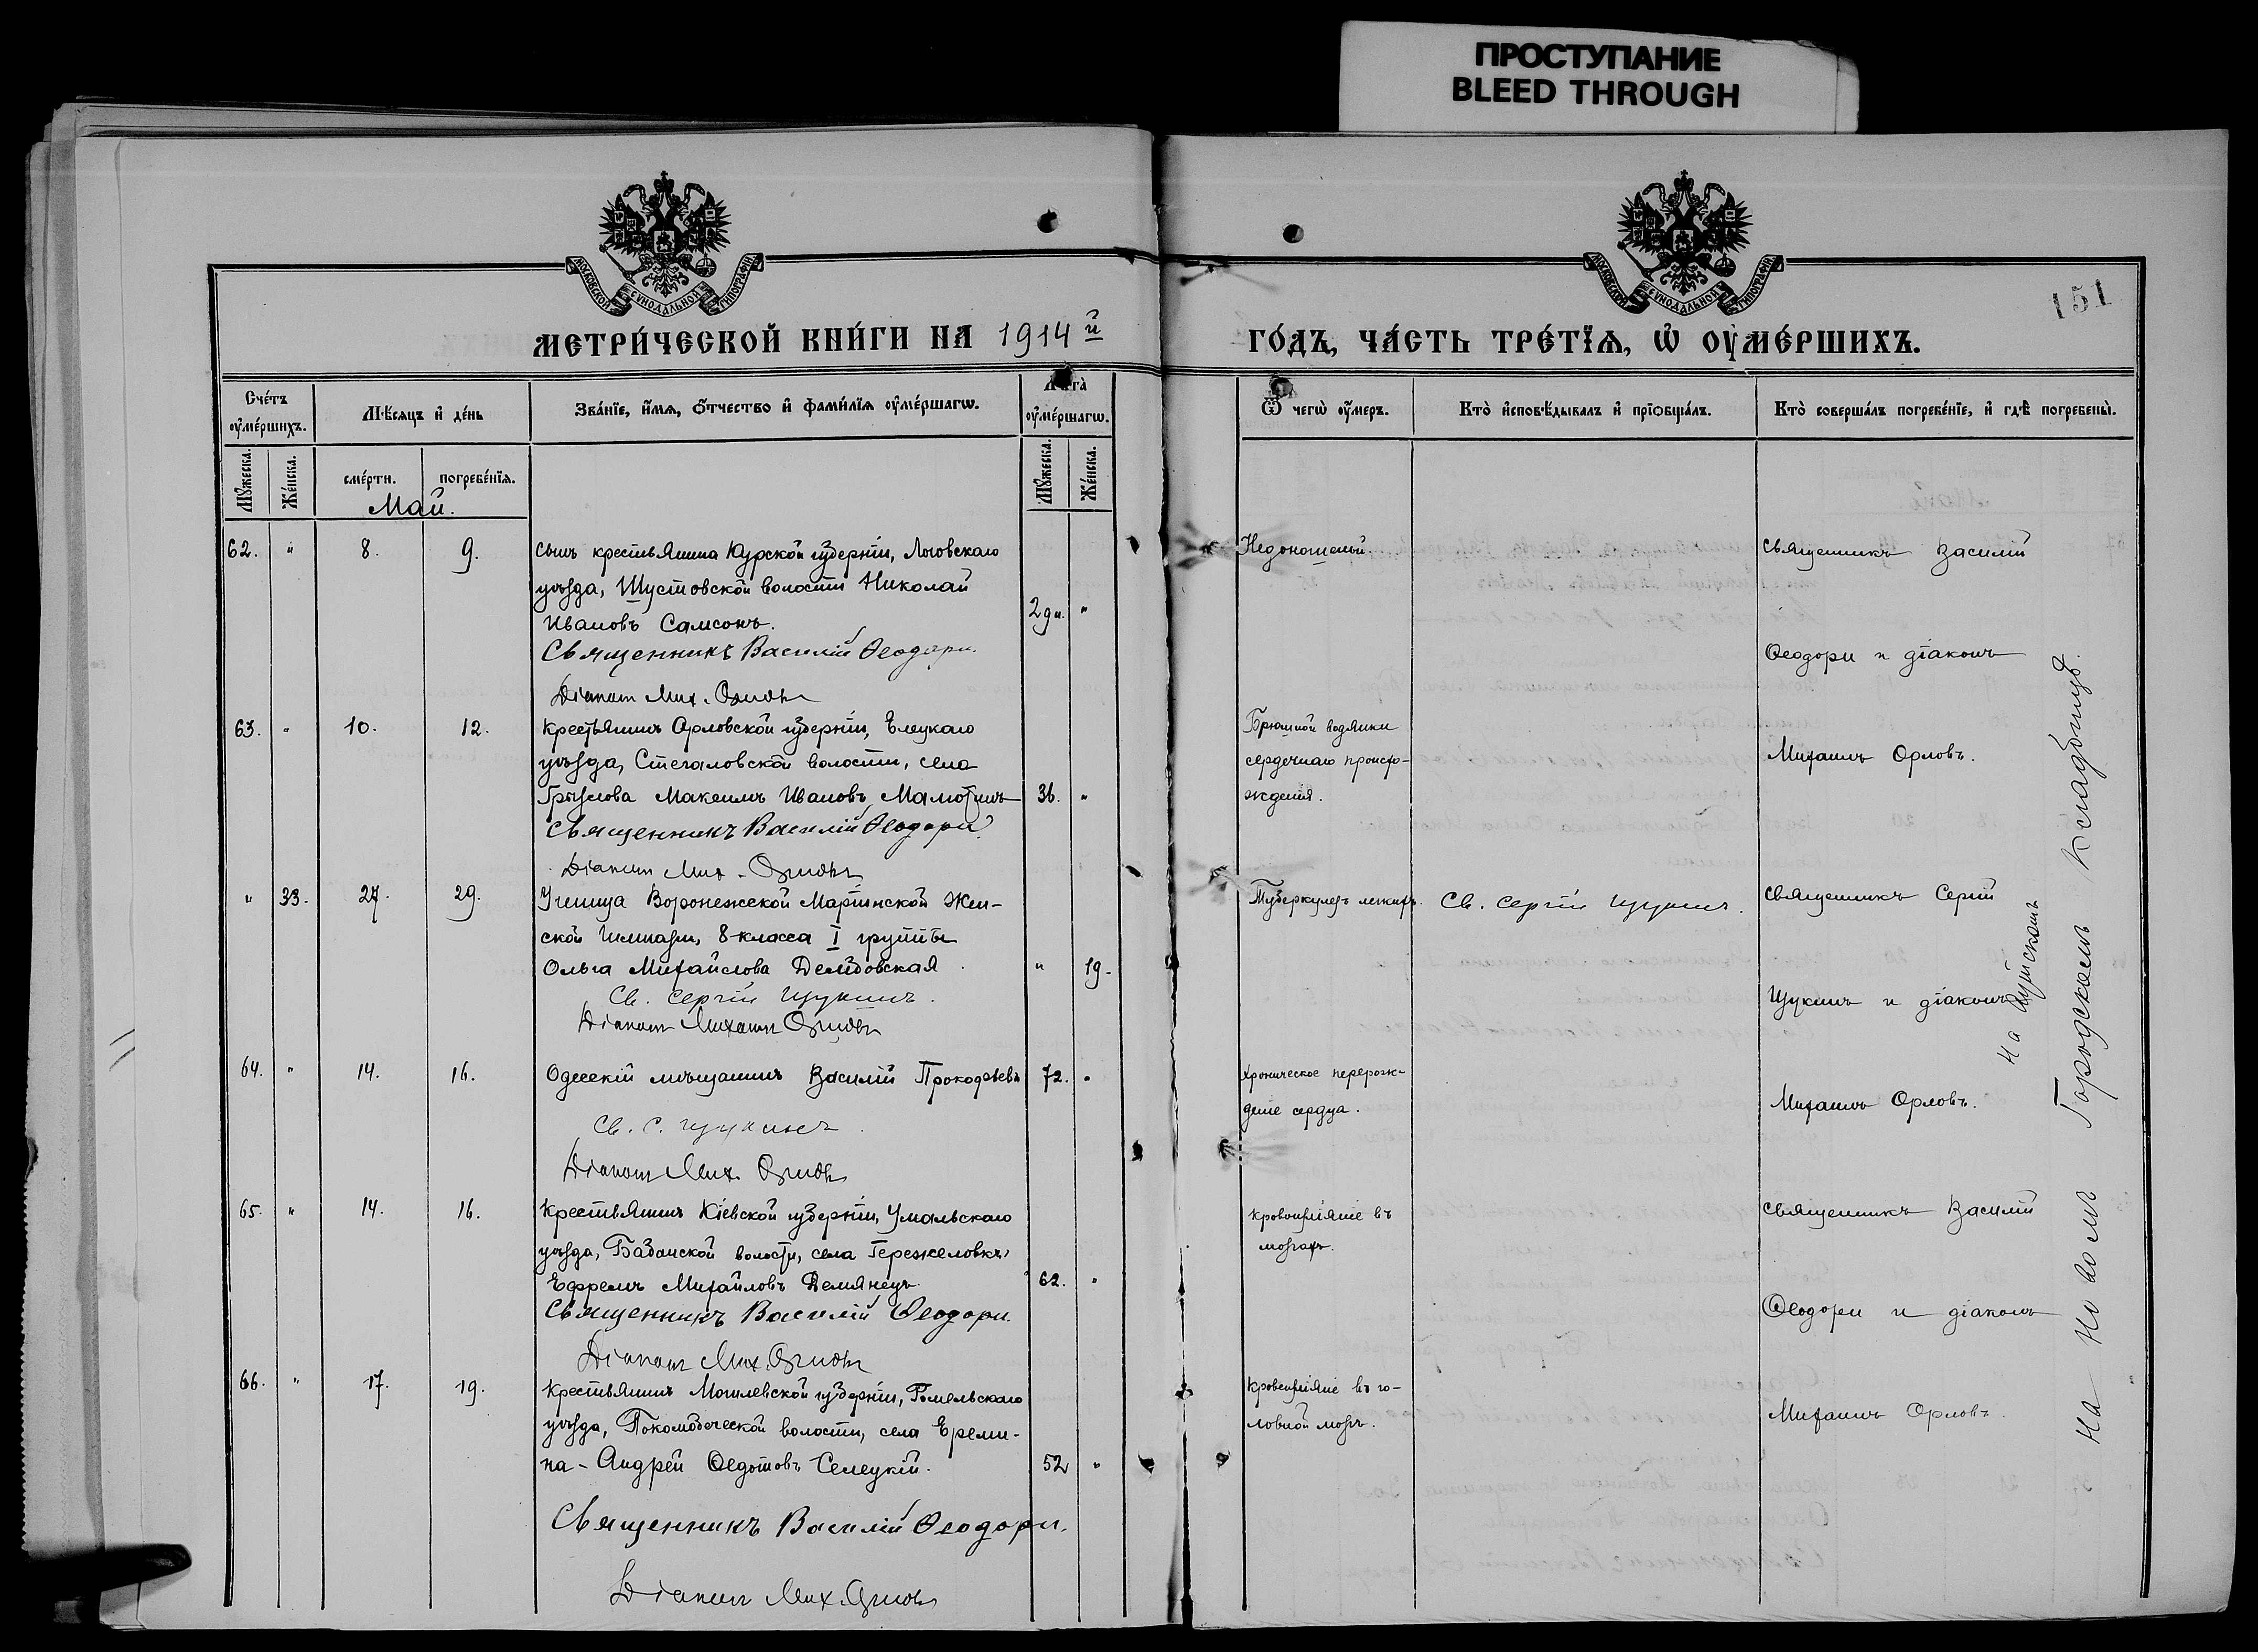 ПРОСТУПАНИЕ
BLEED THROUGH
МОСКОВСКОЙ СѴНОДАЛЬНОЙ ТИПОГРАФІИ
МОСКОВСКОЙ СѴНОДАЛЬНОЙ ТИПОГРАФІИ
151
МЕТРИ́ЧЕСКОЙ КНИ́ГИ НА 1914й
ГО́ДЪ, ЧА́СТЬ ТРЕ́ТЇѦ, Ѡ҆ ОУ҆МЕ́РШИХЪ.
Сче́тъ оу҆ме́ршихъ.
Мѣ́сяцъ и҆ де́нь
Зва́нїе, и҆́мя, ѻ҆́тчество и҆ фами́лїя оу҆ме́ршагѡ.
Лѣ́та оу҆ме́ршагѡ.
Ѿ чегѡ̀ оу҆́меръ.
Кто̀ и҆сповѣ́дывалъ и҆ прїѻбща́лъ.
Кто̀ соверша́лъ погребе́нїе, и҆ гдѣ̀ погребены̀.
Мꙋ́жеска.
Же́нска.
сме́рти.
погребе́нїя.
Мꙋ́жеска.
Же́нска.
Май.
62. " 8. 9. Сынъ крестьянина Курской губерніи, Льговскаго
уѣзда, Шустовской волости Николай
Ивановъ Самсонъ. 2 дн. "
Священникъ Василій Ѳеодори.
Діаконъ Мих. Орловъ
Недоношеный.
Священникъ Василій
Ѳеодори и діаконъ
63. " 10. 12. Крестьянинъ Орловской губерніи, Елецкаго
уѣзда, Стегаловской волости, села
Грызлова Максимъ Ивановъ Малютинъ 36. "
Священникъ Василій Ѳеодори.
Діаконъ Мих. Орловъ
Брюшной водянки
сердечнаго происхо-
жденія.
Михаилъ Орловъ.
" 33. 27. 29. Ученица Воронежской Маріинской Жен-
ской Гимназіи, 8 класса I группы
Ольга Михайлова Демидовская " 19.
Св. Сергій Щукинъ.
Діаконъ Михаилъ Орловъ
Туберкулезъ легкихъ. Св. Сергій Щукинъ.
Священникъ Сергій
Щукинъ и діаконъ
64. " 14. 16. Одесскій мѣщанинъ Василій Прокофьевъ 72. "
Св. С. Щукинъ
Діаконъ Мих. Орловъ
Хроническое перерож-
деніе сердца.
Михаилъ Орловъ.
65. " 14. 16. Крестьянинъ Кіевской губерніи, Уманьскаго
уѣзда, Бабанской волости, села Гережеловки
Ефремъ Михайловъ Демянецъ. 62. "
Священникъ Василій Ѳеодори.
Діаконъ Мих. Орловъ
Кровоизліяніе въ
мозгахъ.
Священникъ Василій
Ѳеодори и діаконъ
66. " 17. 19. Крестьянинъ Могилевской губерніи, Гомельскаго
уѣзда, волости, села Ереми-
на - Андрей Ѳедотовъ Селецкій. 52 "
Священникъ Василій Ѳеодори.
Діаконъ Мих. Орловъ
Кровоизліяніе въ го-
ловной мозгъ.
Михаилъ Орловъ.
На Новомъ Городскомъ Кладбищѣ.